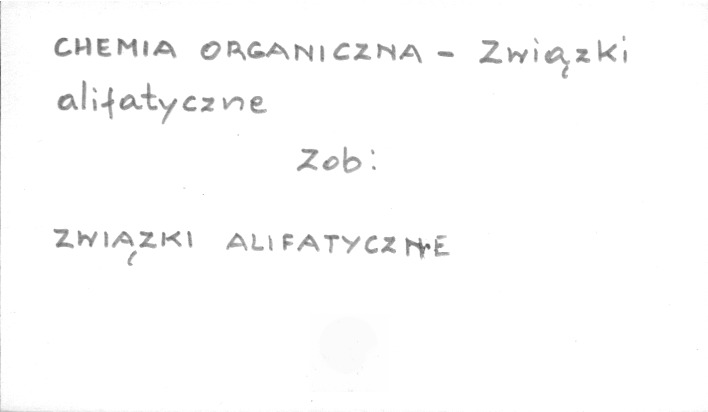 CHEMIA ORGANICZNA - Związki
alifatyczne
Zob:
ZWIĄZKI ALIFATYCZNE